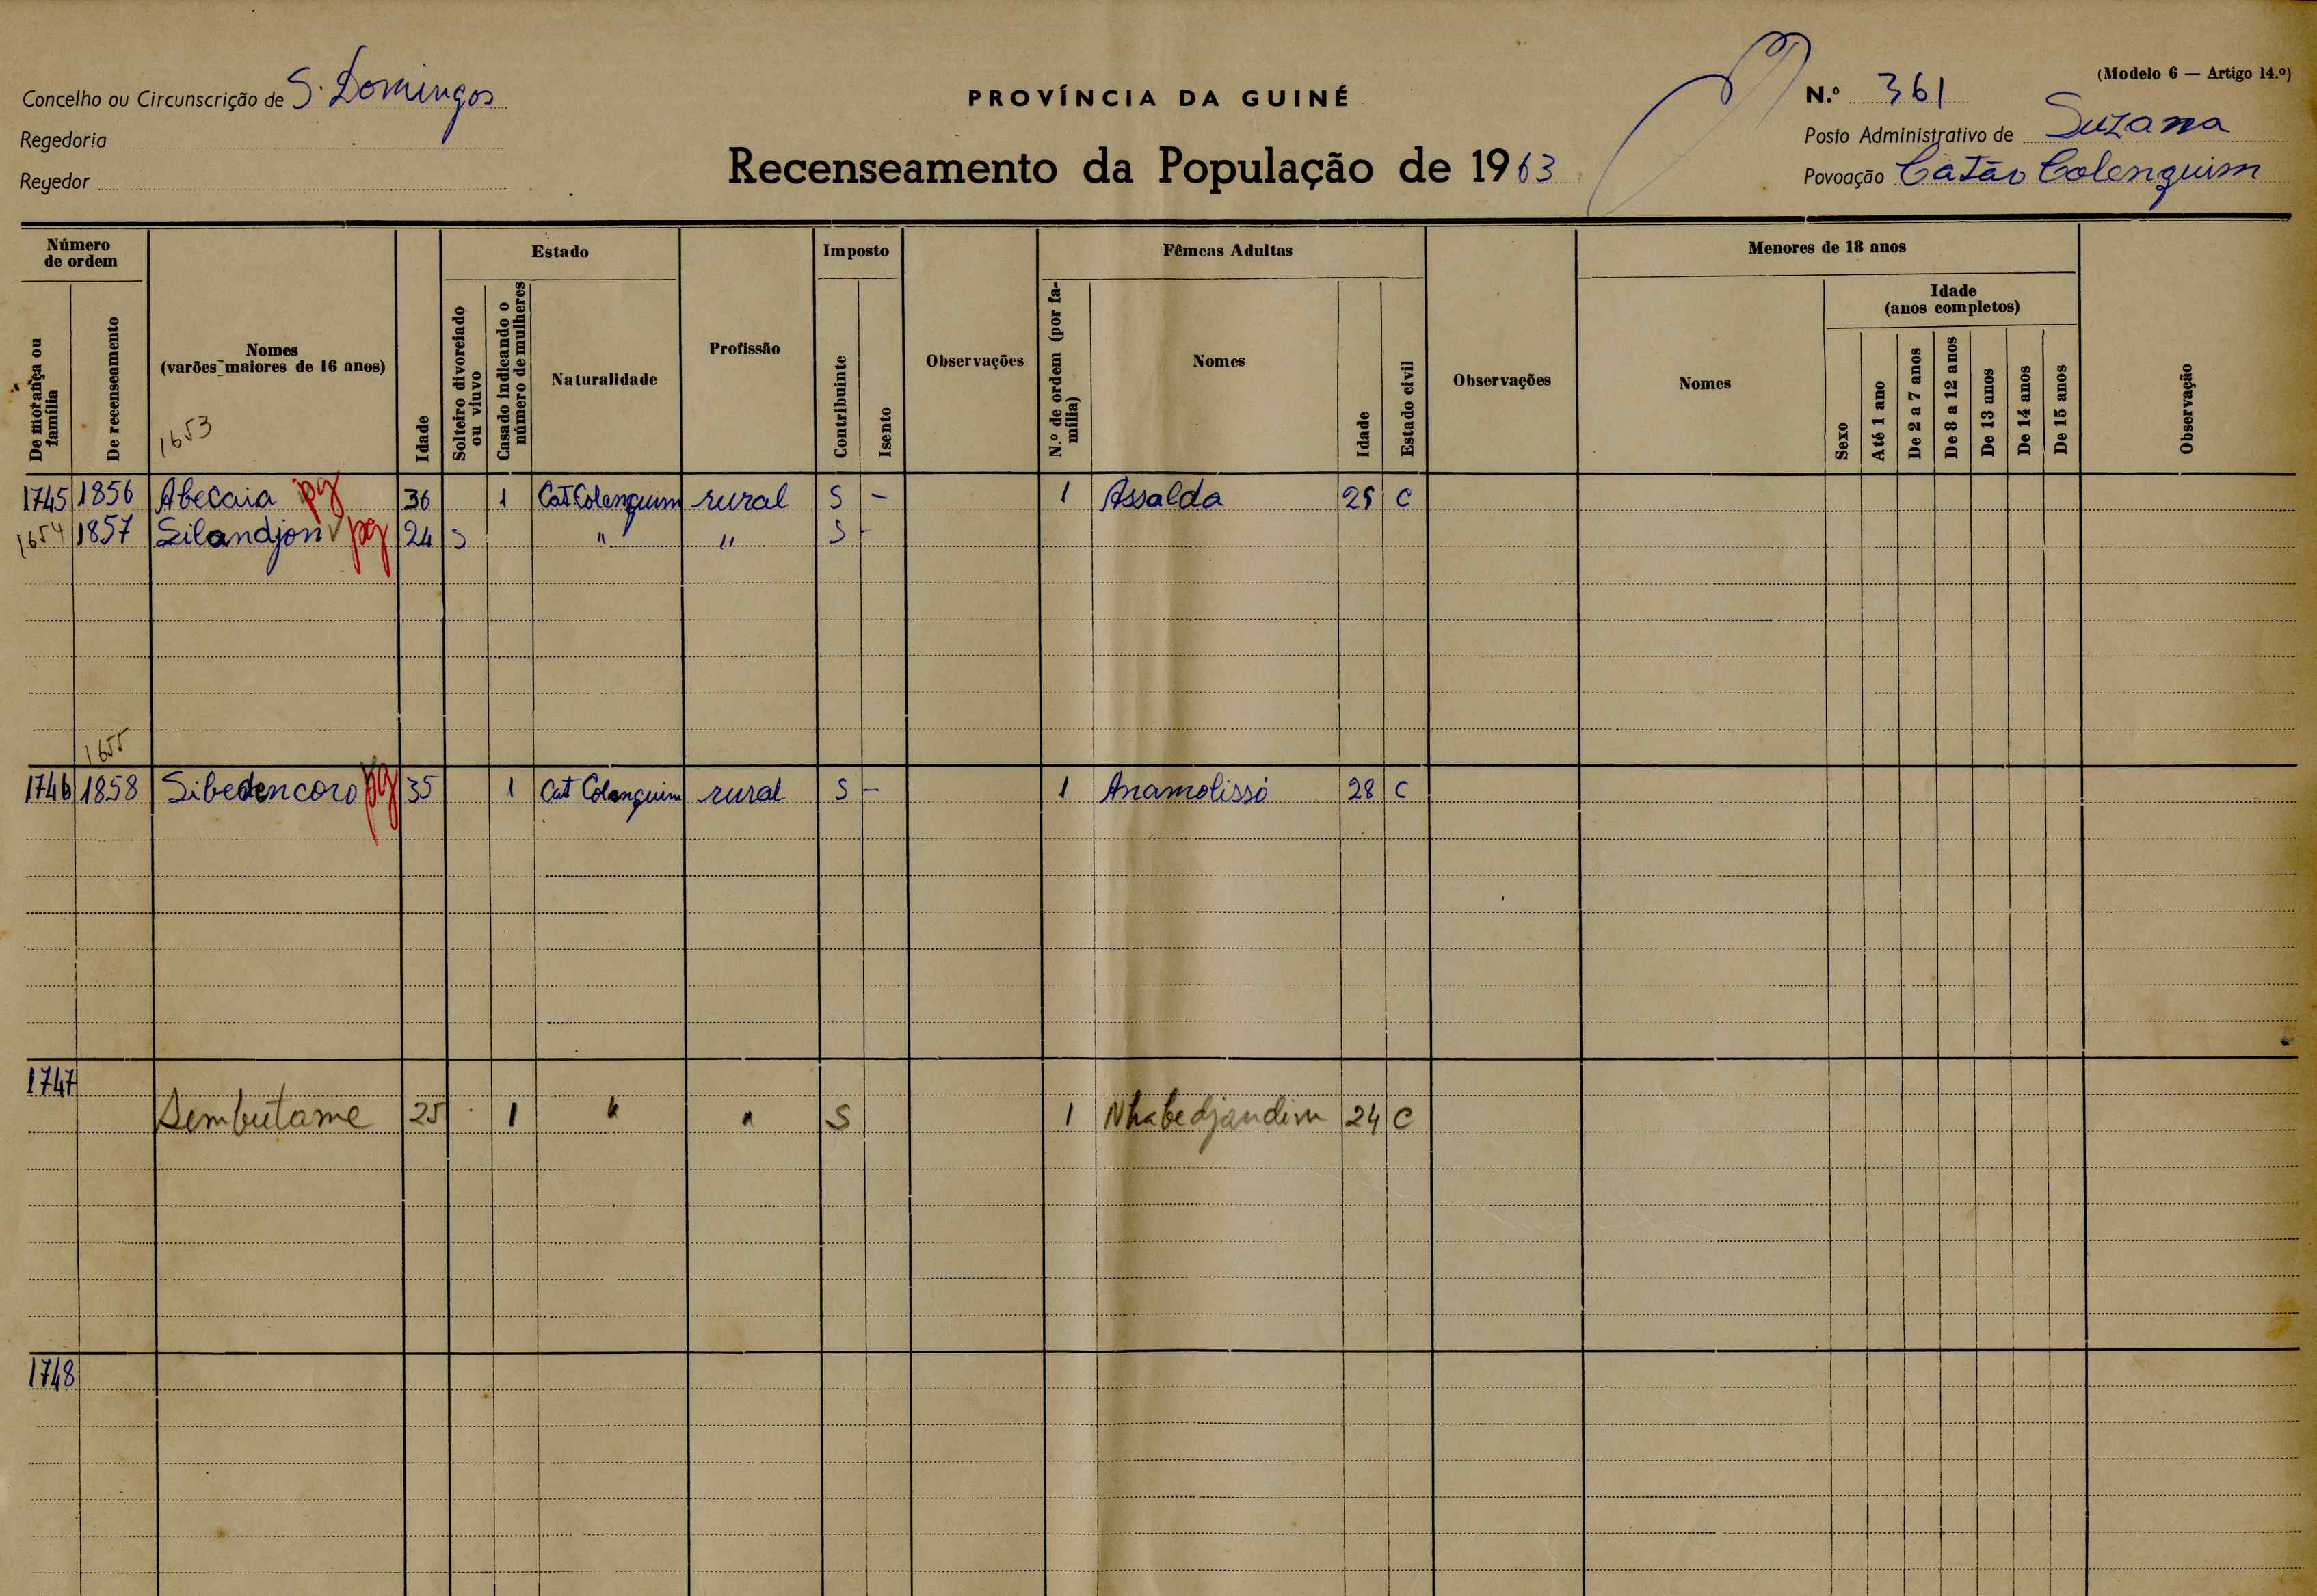 (Modelo 6 — Artigo 14.º)
Concelho ou Circunscrição de S. Domingos
PROVÍNCIA DA GUINÉ
N.º 361
Regedoria
Posto Administrativo de Suzana
Regedor
Recenseamento da População de 1963
Povoação Catão Colenquim
Número de ordem
Estado
Imposto
Fêmeas Adultas
Menores de 18 anos
De morança ou família
De recenseamento
Nomes
(varões maiores de 16 anos)
1653
Idade
Solteiro divorciado ou viuvo
Casado indicando o número de mulheres
Naturalidade
Profissão
Contribuinte
Isento
Observações
N.º de ordem (por família)
Nomes
Idade
Estado civil
Observações
Nomes
Sexo
Idade
(anos completos)
Até 1 ano
De 2 a 7 anos
De 8 a 12 anos
De 13 anos
De 14 anos
De 15 anos
Observação
1745 1856 Abecaia pg 36 1 Cat Colenquim rural S - 1 Assalda 25 C
1654 1857 Silandjon pg 24 S " " S -
1655
1746 1858 Sibedencoro pg 35 1 Cat Colenquim rural S - 1 Anamolissó 28 C
1747
Sembutame 25 1 " " S 1 Nhabedjandim 24 C
1748